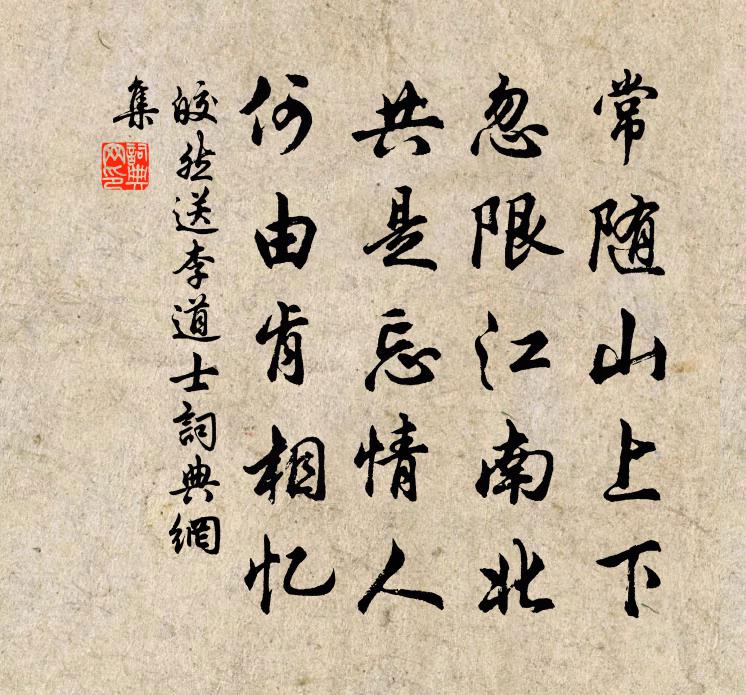 常随山上下
忽限江南北
共是忘情人
何由肯相忆
皎然送李道士詞典網
集
詞典網印